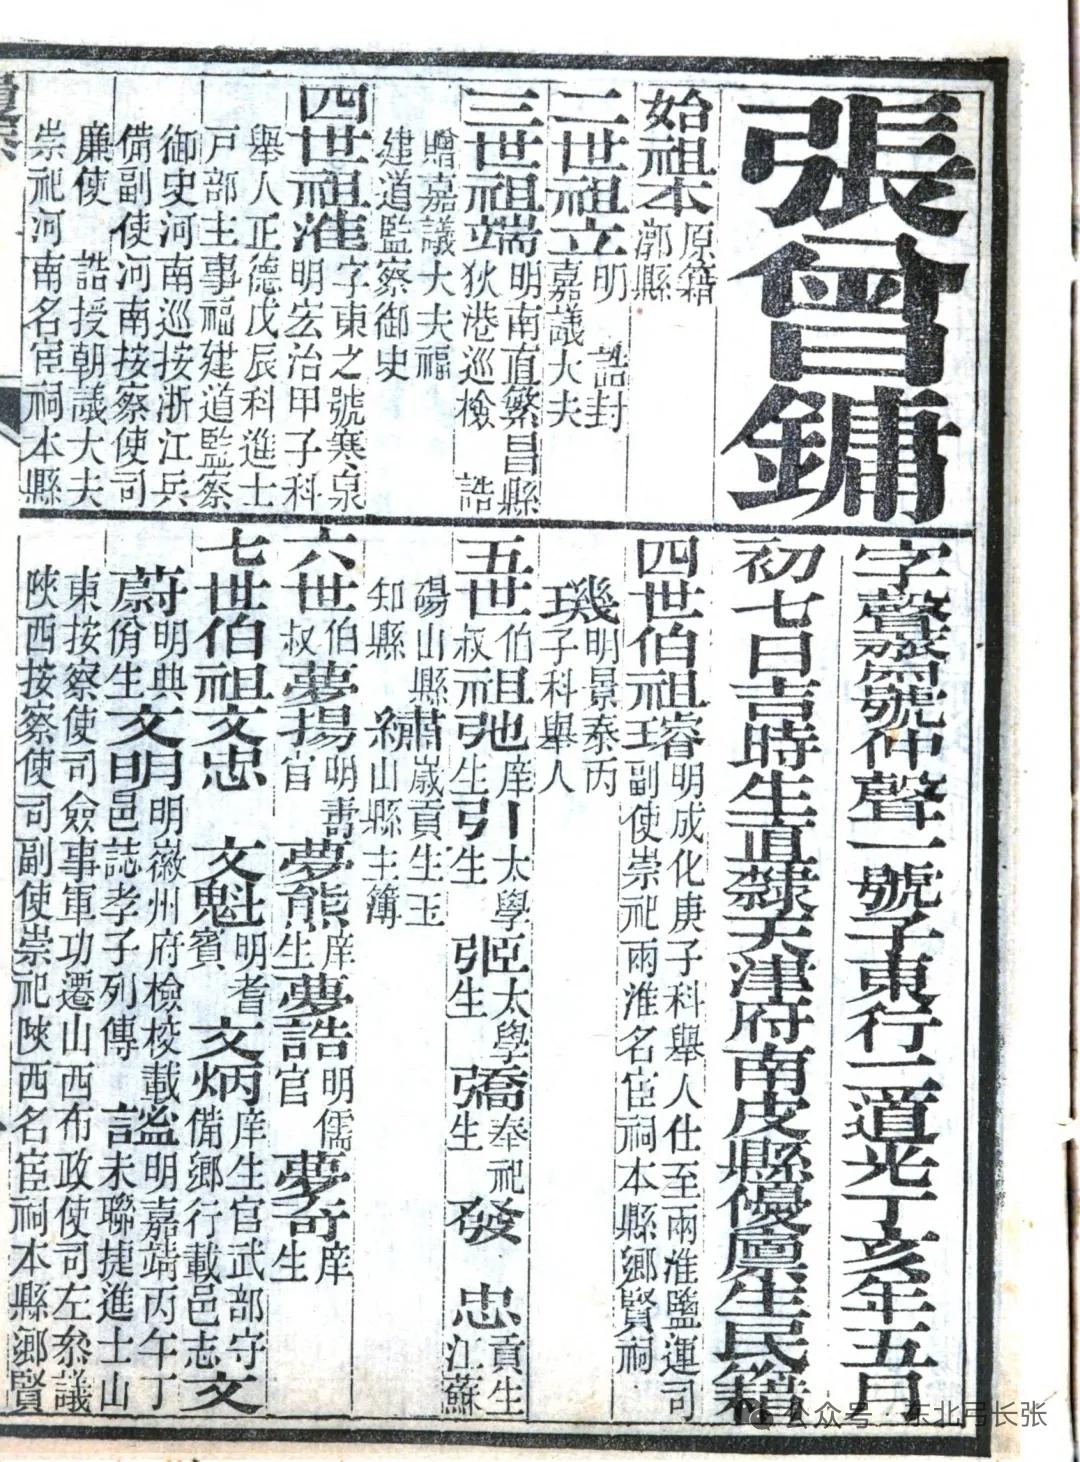 張曾鏞
字聲黻號仲聲一號子東行二道光丁亥年五月
初七日吉時生直隸天津府南皮縣優廩生民籍
始祖本
原籍
漷縣
二世祖立
明 誥封
嘉議大夫
三世祖端
明南直繁昌縣
狄港巡檢 誥
贈嘉議大夫福
建道監察御史
四世祖淮
字東之號寒泉
明宏治甲子科
舉人正德戊辰科進士
戶部主事福建道監察
御史河南巡按浙江兵
備副使河南按察使司
廉使 誥授朝議大夫
崇祀河南名宦祠本縣
四世伯祖睿
明成化庚子科舉人仕至兩淮鹽運司
副使崇祀兩淮名宦祠本縣鄉賢祠
璣
明景泰丙
子科舉人
五世伯叔祖弛
庠生
引
太學生
弫
太學生
奉祀生
發 忠
貢生江蘇
碭山縣
知縣
肅
歲貢生玉
山縣主簿
繡
六世伯叔夢揚
明壽官
夢熊
庠生
夢誥
明儒官
夢奇
庠生
七世伯祖文忠 文魁
明耆賓
文炳
庠生官武部守
備鄉行載邑志
文蔚
明典
膳生
文明
明徽州府檢校載
邑誌孝子列傳
謐
明嘉靖丙午丁
未聯捷進士山
東按察使司僉事軍功遷山西布政使司左叅議
陝西按察使司副使崇祀陝西名宦祠本縣鄉賢
公众号·东北弓长张